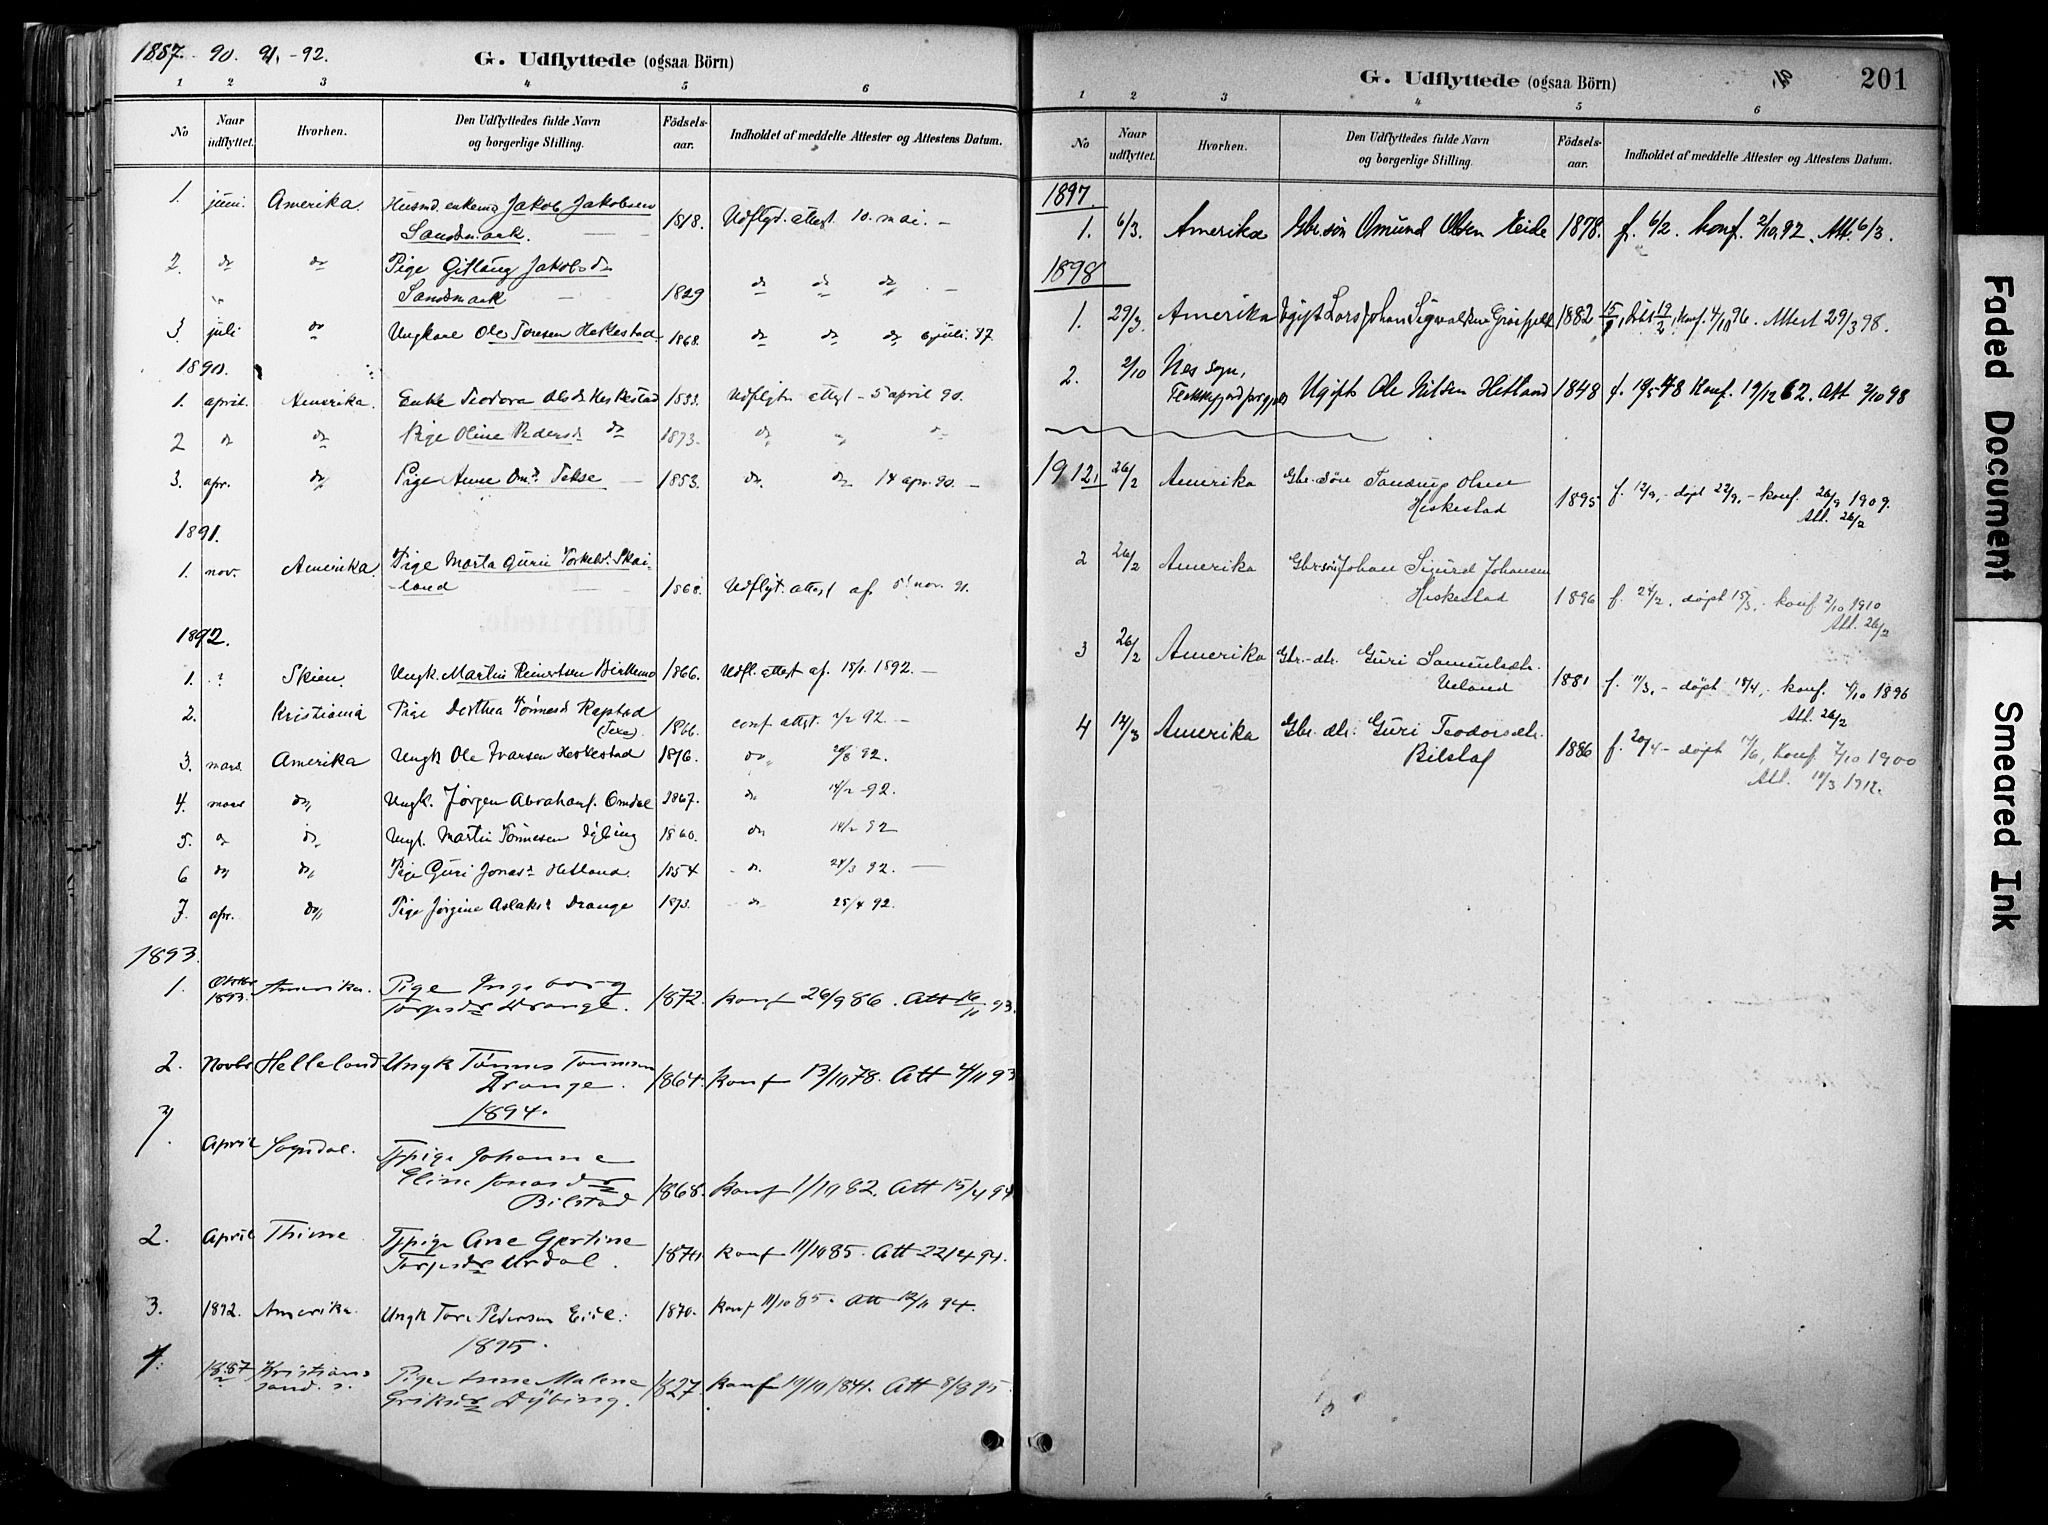 1887. 90. 91. - 92.
G. Udflyttede (ogsaa Börn)
1 2 3 4 5 6
No Naar udflyttet. Hvorhen. Den Udflyttedes fulde Navn og borgerlige Stilling. Födsels-aar. Indholdet af meddelte Attester og Attestens Datum.
1. juni. Amerika. Husmd. enkema Jakob Jakobsen
Sandsmark. 1818. Udflyd. attest 10. mai. -
2. do do Pige Gitlaug Jakobsdr
Sandsmark 1829 do do do -
3 juli do Ungkarl Ole Toresen Heskestad 1868. do do 6 juli. 87
1890.
1. april. Amerika. Enke Teodora Olsdr Heskestad 1833. Udflytn. attest - 5 april 90.
2 do do Pige Oline Pedersd do 1873. do do
3. apr. do Pige Anne Omd. Tekse 1853. do do 14 apr. 90. -
1891.
1. nov. Amerika. Pige Marta Guri Torkelsd. Skai-
-land 1868. Udflyt. attest af nov. 91.
1892.
1. ? Skien. Ungk. Martin Reinertsen Birkemo 1866. Udfl. attest af. 15/1. 1892. -
2. Kristiania Pige Dorthea Tönnesd. Rapstad
(Texe) 1866. conf. attest. 92. -
3. mars. Amerika Ungk Ole Ivarsen Heskestad 1876. do 92.
4. mars do Ungk. Jörgen Abrahams. Omdal 1867. do 14/2 - 92.
5. do do Ungk. Martin Tönnesen Dybing 1860. do 14/2 92
6 do do Pige Guri Jonasd Hetland. 1854 do. 24/3 92. -
7. apr. do Pige Jörgine Aslaksd Drange 1873. do 25/4 92.
1893.
1. Oktbr 1893. Amerika. Pige Ingeborg
Torjusdr Drange. 1872. Konf 26/9 86. Att 16/10 93.
2. Novbr Helleland Ungk Tönnes Tönnesen
Drange. 1864. Konf 13/10 78. Att 4/11 93
1894.
1. April Sogndal. Tjpige Johanne
Eline Jonasdr
Bilstad 1868. Konf 1/10 82. Att 15/4 94
2. April Thime Tjpige Ane Gertine
Torjusdr Urdal. 1871. Konf 11/10 85. Att 22/4 94.
3. 1892. Amerika. Ungk Tore Pedersen Eide. 1870. Konf 11/10 85. Att 12/11 94.
1895.
1. 1887 Kristians
sand. s. Pige Anne Malene
Eriksdr Dÿbing. 1827. Konf 19/10 1841. Att 8/8 95.
G. Udflyttede (ogsaa Börn) 201
1 2 3 4 5 6
No Naar udflyttet. Hvorhen. Den Udflyttedes fulde Navn og borgerlige Stilling. Födsels-aar. Indholdet af meddelte Attester og Attestens Datum.
1897.
1. 6/3. Amerika Gbr.sön Omund Olsen Eide 1878. f. 6/2. Konf. 2/10 92. Att. 6/3.
1898
1. 29/3. Amerika Ugift Lars Johan Sigvaldsen Grösfjeld 1882 15/1, döbt 19/2, Konf. 4/10 96. Attest 29/3 98.
2. 2/10 Nes sogn,
Flekkefjord prgjeld Ugift Ole Nilsen Hetland 1848 f. 19/5 48 Konf. 19/12 62. Att 2/10 98
1912, 26/2 Amerika Gbr.-sön Tandrup Olsen
Heskestad 1895 f. 12/9, - döpt 22/9, - konf. 26/9 1909.
Att. 26/2
2 26/2 Amerika Gbr-sön Johan Sigurd Johansen
Heskestad 1896 f. 24/2. döpt 15/3, - konf 2/10 1910
Att. 26/2
3 26/2 Amerika Gbr.-dtr. Guri Samuelsdtr.
Ueland 1881 f. 11/3, - döpt 18/4, - konf. 4/10 1896
Att. 26/2
4 14/3 Amerika Gbr.-dtr: Guri Teodorsdtr.
Bilstad 1886 f. 20/4 - döpt 14/6, Konf. 7/10 1900
Att. 14/3 1912.
Faded Document
Smeared Ink